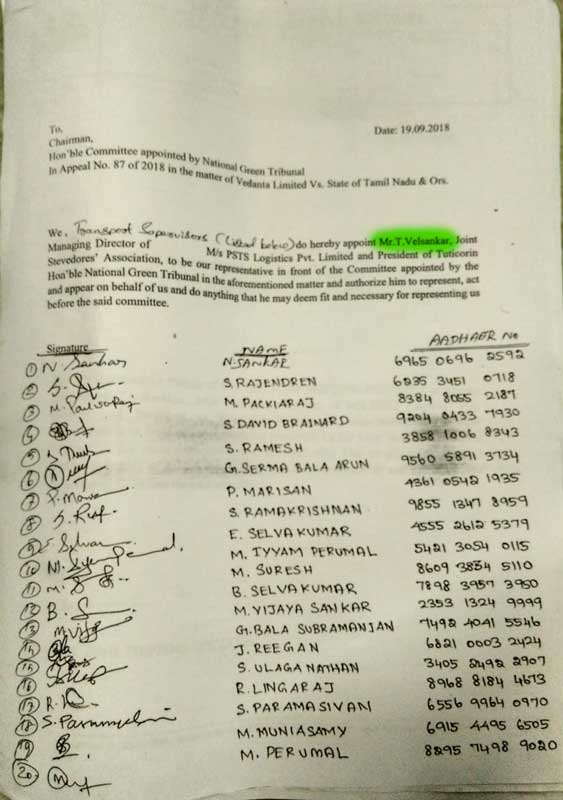 To,
Date: 19.09.2018
Chairman,
Hon'ble Committee appointed by National Green Tribunal
In Appeal No. 87 of 2018 in the matter of Vedanta Limited Vs. State of Tamil Nadu & Ors.
We, Transport Supervisors (Listed below) do hereby appoint Mr.T.Velsankar, Joint
Managing Director of M/s PSTS Logistics Pvt. Limited and President of Tuticorin
Stevedores' Association, to be our representative in front of the Committee appointed by the
Hon'ble National Green Tribunal in the aforementioned matter and authorize him to represent, act
and appear on behalf of us and do anything that he may deem fit and necessary for representing us
before the said committee.
Signature NAME AADHAER No
1 N. Sankar N. SANKAR 6965 0696 2592
2 S. RAJENDREN 6235 3451 0718
3 M. PACKIARAJ 8384 8055 2187
4 S. DAVID BRAINARD 9204 0433 7930
5 S. RAMESH 3858 1006 8343
6 G. SERMA BALA ARUN 9560 5891 3734
7 P. MARISAN 4361 0542 1935
8 S. RAMAKRISHNAN 9855 1347 8959
9 E. SELVA KUMAR 4555 2612 5379
10 M. IYYAM PERUMAL 5421 3054 0115
11 M. SURESH 8609 3834 5110
12 B. SELVA KUMAR 7898 3957 3950
13 M. VIJAYA SANKAR 2353 1324 9999
14 G. BALA SUBRAMANIAN 7492 4041 5546
15 J. REEGAN 6821 0003 2424
16 S. ULAGANATHAN 3405 2492 2907
17 R. LINGARAJ 8968 8184 4673
18 S. PARAMASIVAN 6556 9964 0970
19 M. MUNIASAMY 6915 4495 6505
20 M. PERUMAL 8295 7498 9020